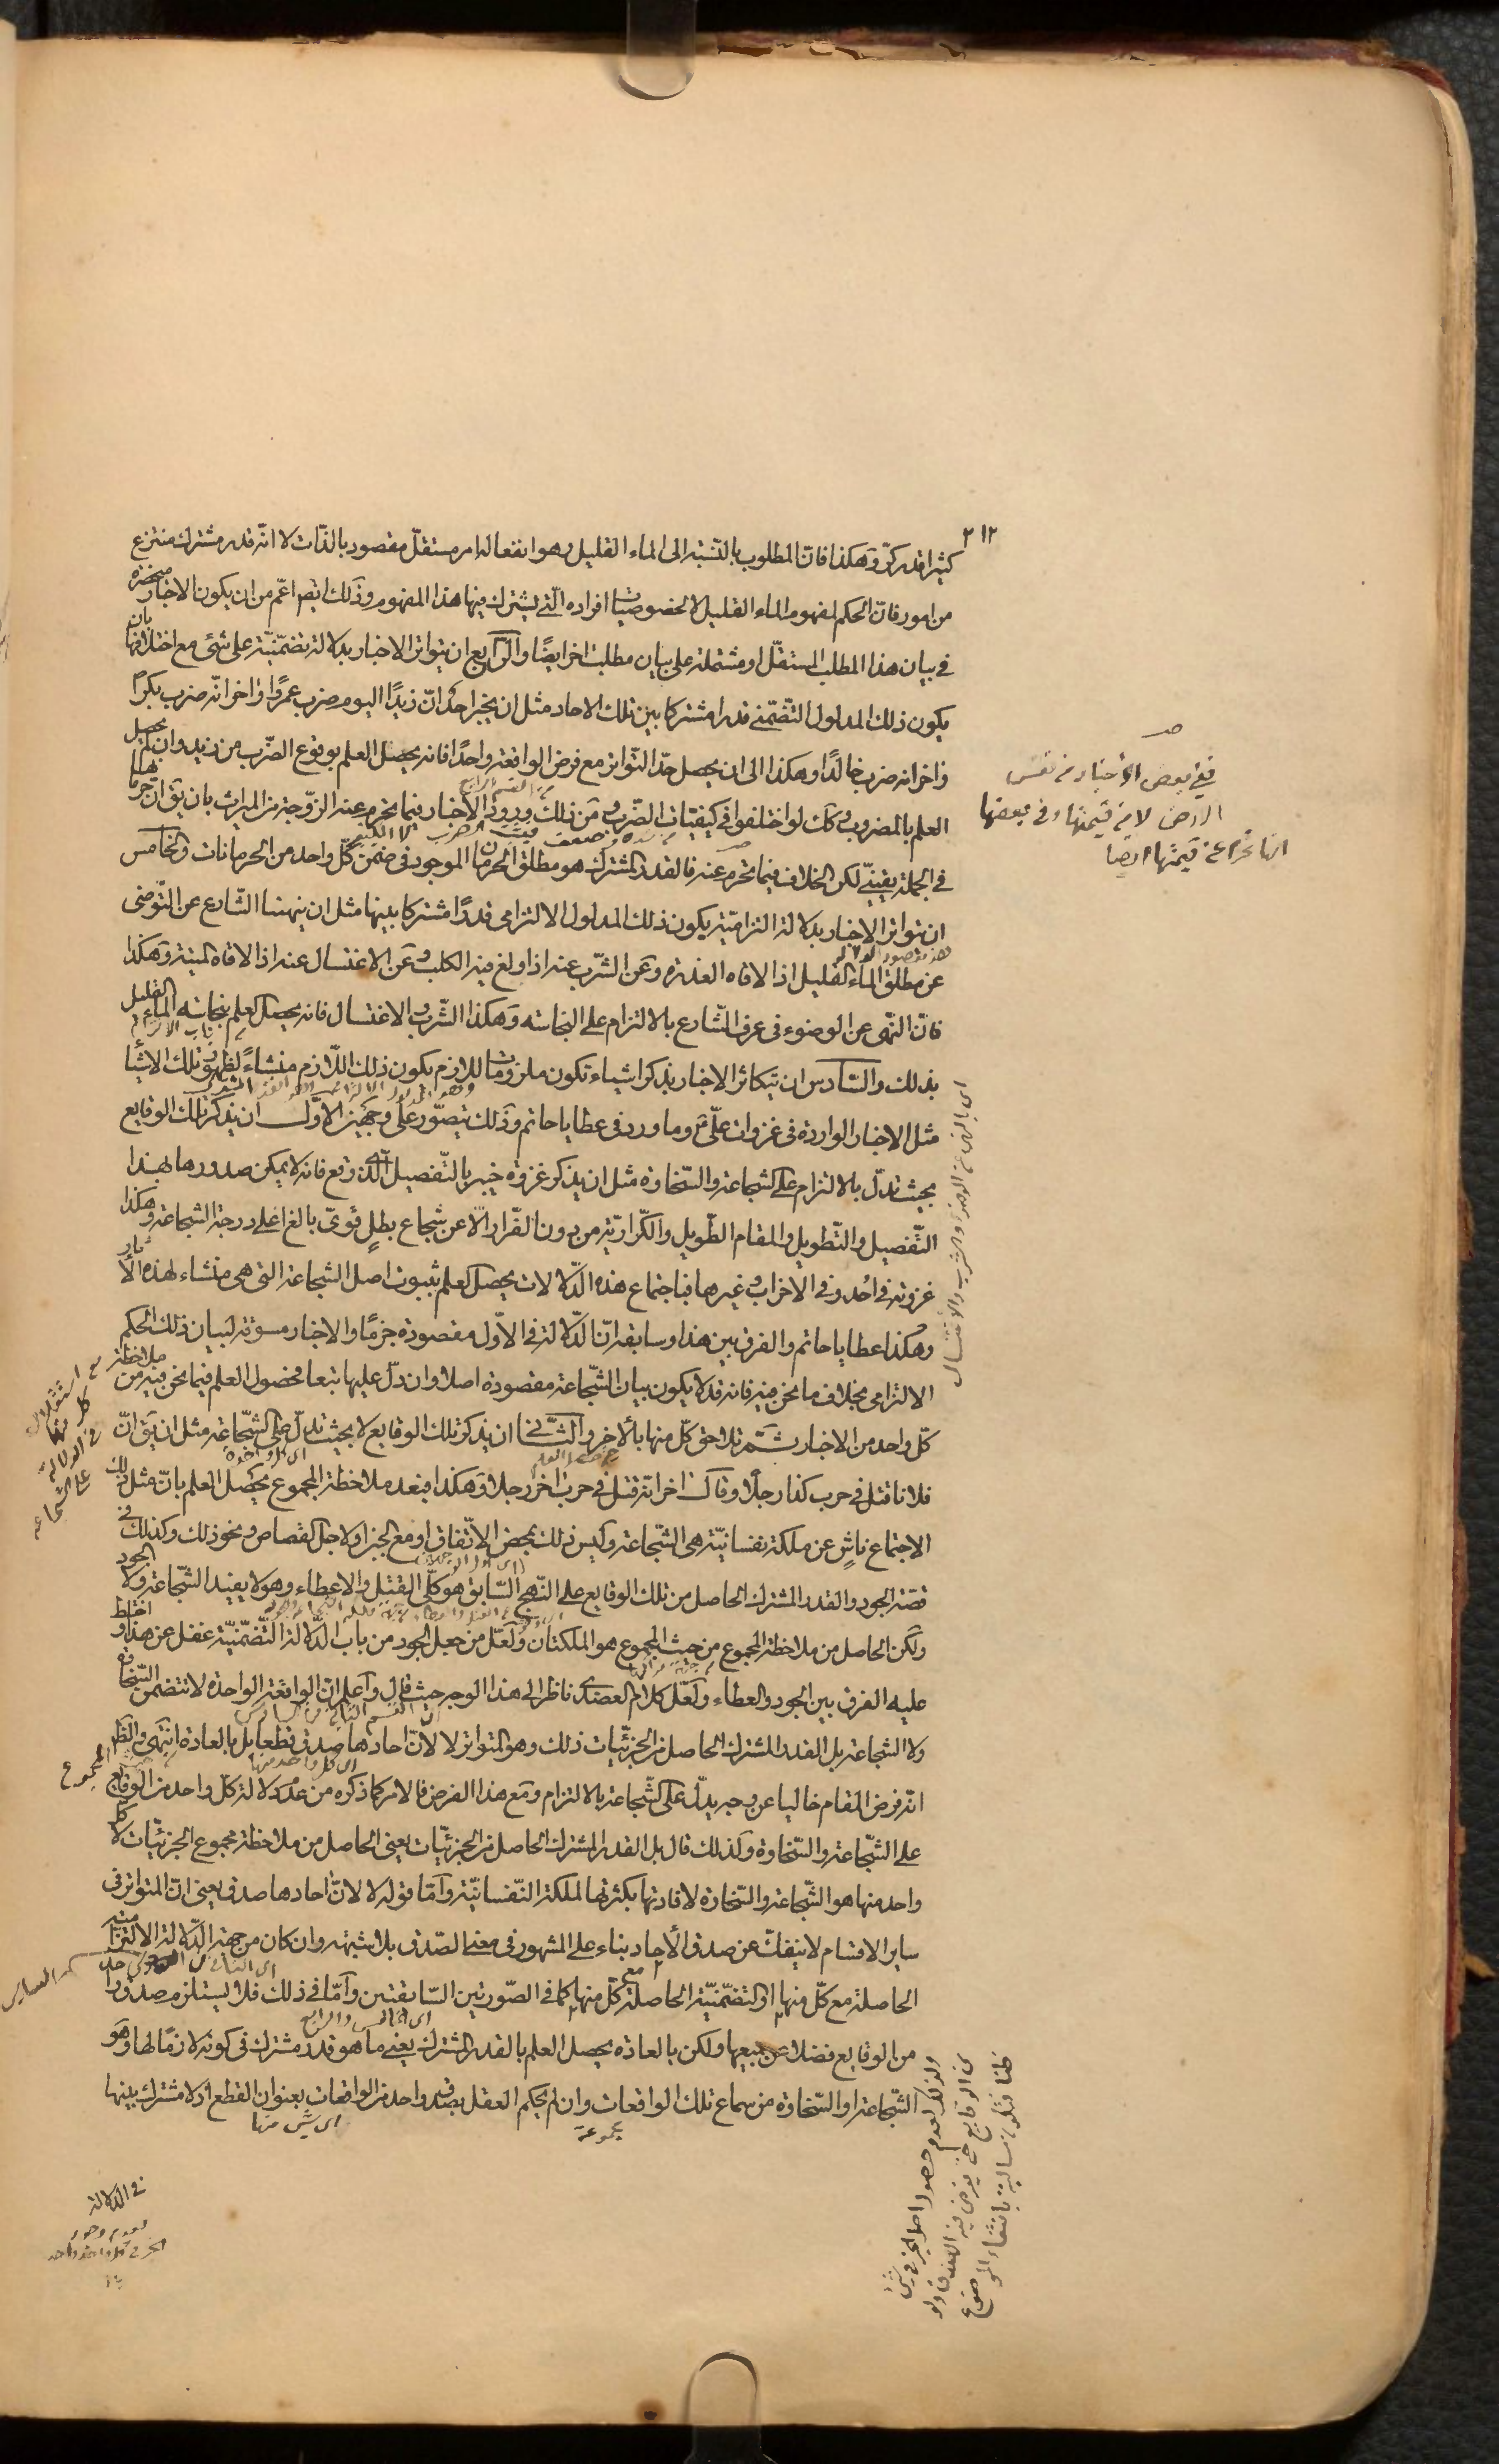 ٢١٢
كثيرا قدر كرّ وهكذا فانّ المطلوب بالنّسبة الى الماء القليل وهو انفعاله امر مستقلّ مقصود بالذّات لا انّه قدر مشترك منتزع
من امور فانّ الحكم لمفهوم الماء القليل لا لخصوصيّات افراده الّتى يشترك فيها هذا المفهوم وذلك ايضا اعّم من ان يكون الاخبار منحصرة
فى بيان هذا المطلب المستقلّ او مشتملة على بيان مطلب اخر ايضًا والرّابع ان يتواتر الاخبار بدلالة تضمّنيّة على شئى مع اختلافها بان
يكون ذلك المدلول التّضمّنى قدرا مشتركا بين تلك الاحاد مثل ان يخبر احد انّ زيدًا اليوم ضرب عمروًا واخر انّه ضرب بكرًا
واخر انه ضرب خالدًا وهكذا الى ان يحصل حدّ التّواتر مع فرض الواقعة واحدًا فانه يحصل العلم بوقوع الضّرب من زيد وان لم يحصل
العلم بالمضروب وكك لو اختلفوا فى كيفيّات الضّرب ومن ذلك ورود الاخبار فيما تحرم عنه الزّوجة من الميراث بان يق ان حرمانها
فى الجملة يقينىّ لكن الخلاف فيما تحرم عنه فالقدر المشترك هو مطلق الحرمان الموجود فى ضمن كلّ واحد من الحرمانات والخامس
ان يتواتر الاخبار بدلالة التزاميّة يكون ذلك المدلول الالتزامى قدرًا مشتركا بينها مثل ان ينهينا الشّارع عن التّوضى
عن مطلق الماء القليل اذا لاقاه العذرة وعن الشّرب عنه اذا ولغ فيه الكلب وعن الاغتسال عنه اذا لاقاه الميتة وهكذا
فانّ النّهى عن الوضوء فى عرف الشّارع بالالتزام على النجاسة وهكذا الشّرب والاغتسال فانه يحصل العلم بنجاسة الماء القليل
بذلك والسّادس ان يتكاثر الاخبار بذكر اشياء تكون ملزومات للازم يكون ذلك اللّازم منشاءً لظهور تلك الاشيا
مثل الاخبار الواردة فى غزوات علىّ ع وما ورد فى عطايا حاتم وذلك يتصوّر على وجهين الاوّل ان يذكر تلك الوقايع
بحيث تدلّ بالالتزام على الشجاعة والسّخاوة مثل ان يذكر غزوة خيبر بالتّفصيل الّذى وقع فانه لا يمكن صدورها بهذا
التّفصيل والتّطويل والمقام الطّويل والكّراريّة من دون الفّرار الّا عن شجاع بطلٍ قوىّ بالغ اعلى درجة الشجاعة وهكذا
غزوته فى اُحد وفى الاحزاب وغيرها فباجتماع هذه الدّلالات يحصل العلم بثبوت اصل الشجاعة التى هى منشاء لهذه الأثار
وهكذا عطايا حاتم والفرق بين هذا وسابقه انّ الدّلالة فى الاوّل مقصودة جزمًا والاخبار مسوقة لبيان ذلك الحكم
الالتزامى بخلاف ما نحن فيه فانه قد لا يكون بيان الشّجاعة مقصودة اصلا وان دلّ عليها تبعا فحصول العلم فيما نحن فيه من ملاحظة
كلّ واحد من الاخبار ثمّ تلاحق كلّ منها بالاخر والثّانى ان يذكر تلك الوقايع لا بحيث تدلّ على الشّجاعة مثل ان يق انّ
فلانا قتل فى حرب كذا رجلًا وقال اخر انّه قتل فى حرب اخر رجلا وهكذا فبعد ملاحظة المجموع يحصل العلم بانّ مثل ذلك
الاجتماع ناشٍ عن ملكة نفسانيّة هى الشّجاعة وليس ذلك بمحض الاتّفاق او مع الجبن او لاجل القصاص ونحو ذلك وكذلك فى
قصّة الجود والقدر المشترك الحاصل من تلك الوقايع على النّهج السّابق هو كلّى القتل والاعطاء وهو لا يفيد الشّجاعة ولا الجود
ولكن الحاصل من ملاحظة المجموع من حيث المجموع هو الملكتان ولعلّ من جعل الجود من باب الدّلالة التّضمّنيّة غفل عن هذا واختلط
عليه الفرق بين الجود والعطاء ولعلّ كلام العضدى ناظر الى هذا الوجه حيث قال واعلم انّ الواقعة الواحدة لا تتضمن السّخاوة
ولا الشجاعة بل القدر المشترك الحاصل من الجزئيّات ذلك وهو المتواتر لا لانّ احادها صدق قطعا بل بالعادة انتهى والظ
انّه فرض المقام خاليا عن وجه يدلّ على الشّجاعة بالالتزام ومع هذا الفرض فالامر كما ذكره من عدم دلالة كلّ واحد من الوقايع
على الشّجاعة والسّخاوة ولذلك قال بل القدر المشترك الحاصل من الجزئيّات يعنى الحاصل من ملاحظة مجموع الجزئيّات لا كل
واحد منها هو الشّجاعة والسّخاوة لافادتها بكثرتها الملكة النّفسانيّة وامّا قوله لا لانّ احادها صدق يعنى انّ المتواتر فى
ساير الاقسام لا ينفك عن صدق الأحاد بناء على المشهور فى معنى الصّدق بلا شبهة وان كان من جهة الدّلالة الالتزامية
الحاصلة مع كلّ منها او التّضمّنيّة الحاصلة مع كلّ منها كما فى الصّورتين السّابقتين وامّا فى ذلك فلا يستلزم صدق واحد
من الوقايع فضلا عن جميعها ولكن بالعادة يحصل العلم بالقدر المشترك يعنى ما هو قدر مشترك فى كونه لازمًا لها وهو
الشّجاعة او السّخاوة من سماع تلك الواقعات وان لم يحكم العقل بصدق واحد من الواقعات بعنوان القطع اذ لا مشترك بينها
اى شئ منها
مجموعة
فى الدّلالة
ففى بعض الاخبار من نفس
الارض لا من قيمتها وفى بعضها
انها تحرم عن قيمتها ايضا